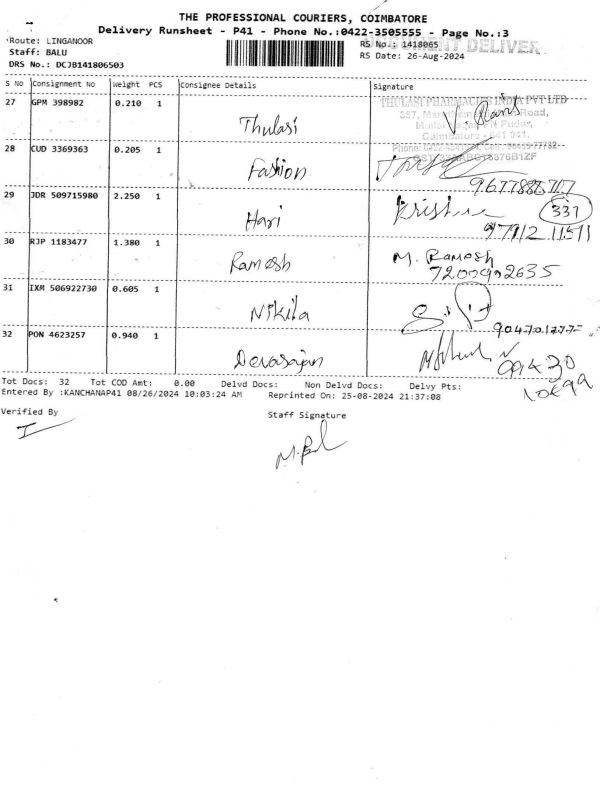 THE PROFESSIONAL COURIERS, COIMBATORE
Delivery Runsheet - P41 - Phone No.:0422-3505555 - Page No.:3
Route: LINGANOOR
Staff: BALU
DRS No.: DCJB141806503
RS No.: 1418065
RS Date: 26-Aug-2024
DOCUMENT DELIVER
S No Consignment No Weight PCS Consignee Details Signature
27 GPM 398982 0.210 1 Thulasi V. Rani
THULASI PHARMACIES INDIA PVT LTD
28 CUD 3369363 0.205 1 Fashion
29 JDR 509715980 2.250 1 Hari 331
30 RJP 1183477 1.380 1 Ramesh M. Ramesh
7200902635
31 IXM 506922730 0.605 1 Nikila
32 PON 4623257 0.940 1 Devarajan
Tot Docs: 32 Tot COD Amt: 0.00 Delvd Docs: Non Delvd Docs: Delvy Pts:
Entered By :KANCHANAP41 08/26/2024 10:03:24 AM Reprinted On: 25-08-2024 21:37:08
Verified By
Staff Signature